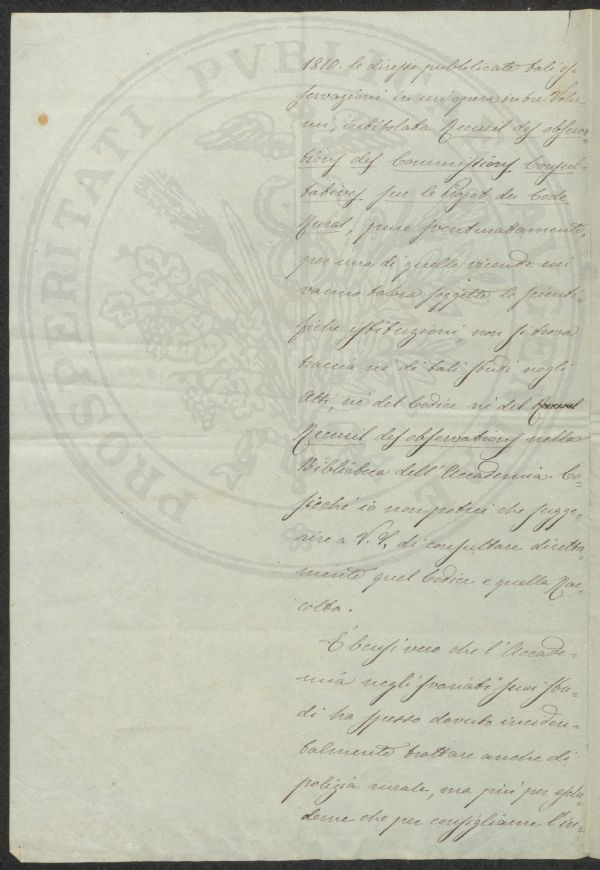 PROSPERITATI PVBLICAE
1810. le diresse pubblicate tali os-
servazioni in un'opera in tre Volu-
mi, intitolata Recueil des observa-
tions des Commissions Consul-
tatives sur le Projet du Code
Rural, pure sventuratamente,
per una di quelle vicende cui
vanno talora soggette le scienti-
fiche istituzioni, non si trova
traccia nè di tali studi negli
Atti, nè del Codice nè del
Recueil des observations nella
Biblioteca dell'Accademia. Co-
sicchè io non potrei che sugge-
rire a V. S. di consultare diretta-
mente quel Codice e quella Rac-
colta.
È bensì vero che l'Accade-
mia negli svariati suoi stu-
di ha spesso dovuto inciden-
talmente trattare anche di
polizia rurale, ma più per esclu-
derne che per consigliarne l'in-